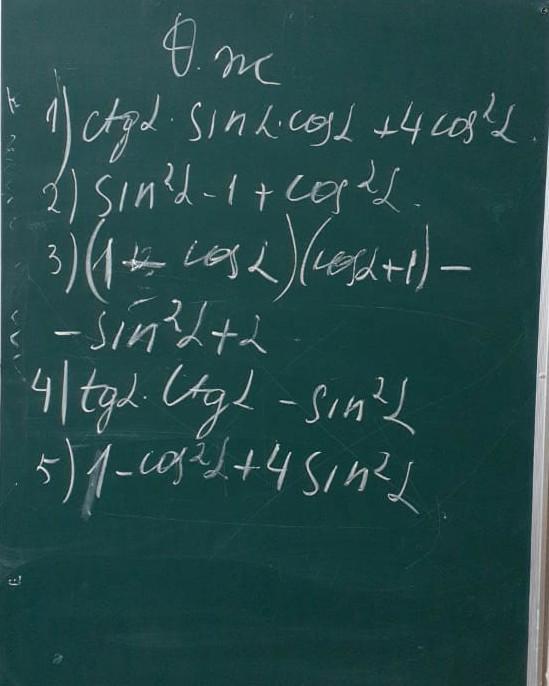 1) ctgα · sinα · cosα + 4cos²α
2) sin²α - 1 + cos²α.
3) (1 - cosα)(cosα+1) -
- sin²α + 2
4) tgα · ctgα - sin²α
5) 1 - cos²α + 4 sin²α